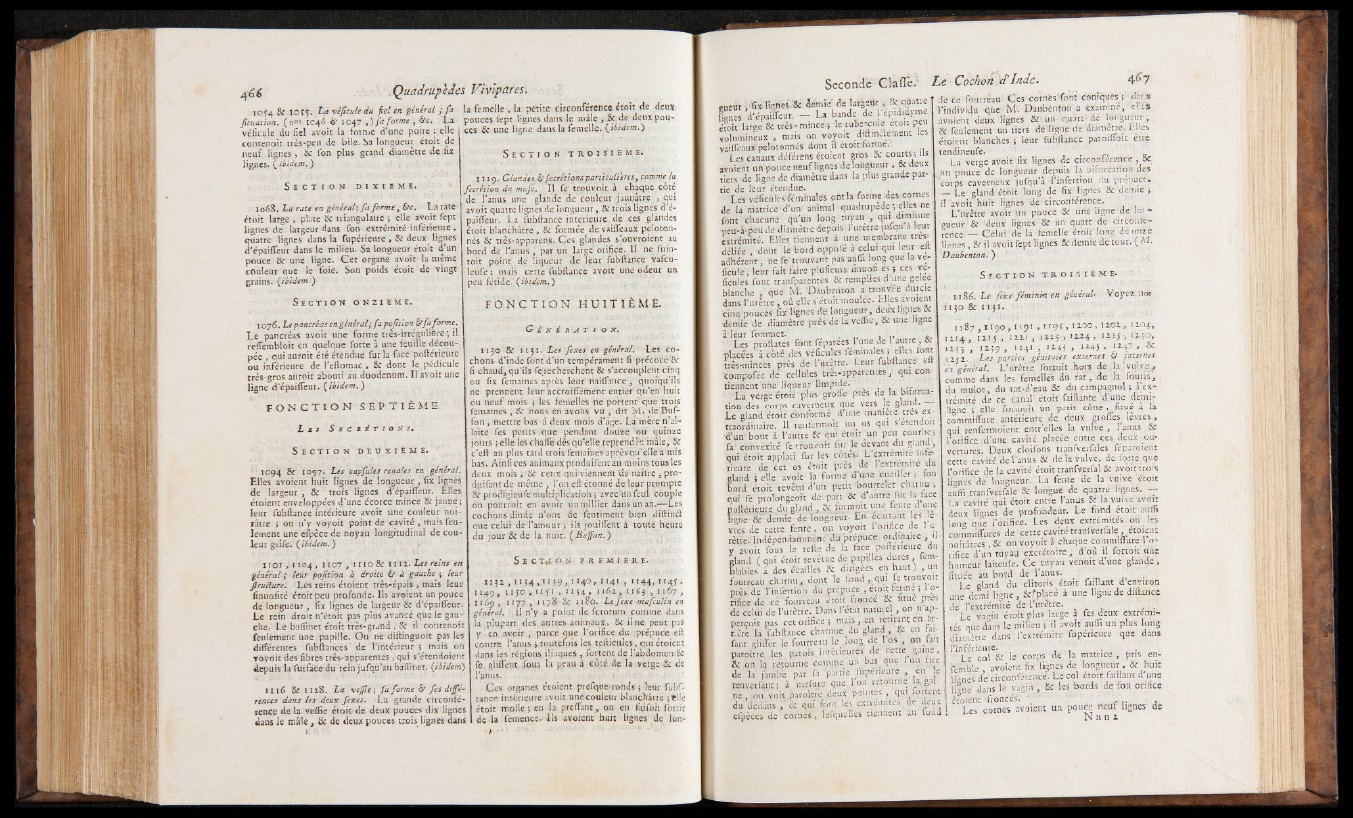 466 Quadrupèdes Vivipares.
1054 & 1055. La véficule du fiel en général ; fa
fituation. ( nos 1046 & 1047 , ) fa forme , &c. La
véficule du fiel avoit la forme d'une poire : elle
contenoit très-peu de bile. Sa longueur étoit de
neuf lignes , & fon plus grand diamètre de fix
lignes. ( ibidem. )
SECTION DIXIEME.
1068. La rate en général : fa forme , &c. La rate
étoit large , plate & triangulaire ; elle avoit fept
lignes de largeur dans fon extrémité inférieure ,
quatre lignes dans la fupérieure , & deux lignes
d'épaiffeur dans le milieu. Sa longueur étoit d'un
pouce & une ligne. Cet organe avoit la même
couleur que le foie. Son poids étoit de vingt
grains. (ibidem.)
SECTION ONZIEME.
1076. Le pancréas en général ; fa pofition & fa forme.
Le pancréas avoit une forme très-irrégulière ; il
reffembloit en quelque forte à une feuille décou-
pée , qui auroit été étendue fur la face poftérieure
ou inférieure de l'eftomac , & dont le pédicule
très-gros auroit abouti au duodenum. Il avoit une
ligne d'épaiffeur. ( ibidem. )
FONCTION SEPTIÈME.
LES SECRÉTIONS.
SECTION DEUXIEME.
1094 & 1097. Les capfules renales en général.
Elles avoient huit lignes de longueur , fix lignes
de largeur , & trois lignes d'épaiffeur. Elles
étoient enveloppées d'une écorce mince & jaune ;
leur fubftance intérieure avoit une couleur noi-
râtre ; on n'y voyoit point de cavité , mais feu-
lement une efpèce de noyau longitudinal de cou-
leur grife. ( ibidem. )
1101 , 1104 , 1107 , 1110 & 1112. Les reins en
général ; leur pofition à droite & à gauche ; leur
ftructure. Les reins étoient très-épais , mais leur
finuofité étoit peu profonde. Ils avoient un pouce
de longueur , fix lignes de largeur & d'épaiffeur.
Le rein droit n'étoit pas plus avancé que le gau-
che. Le baffinet étoit très-grand , & il contenoit
feulement une papille. On ne diftinguoit pas les
différentes fubftances de l'intérieur ; mais on
voyoit des fibres très-apparentes , qui s'étendoient
depuis la furface du rein jufqu'au baffinet. (ibidem)
1116 & 1128. La veffie ; fa forme & fes diffé-
rences dans les deux fexes. La grande circonfé-
rence de la veffie étoit de deux pouces dix lignes
dans le mâle , & de deux pouces trois lignes dans
la femelle , la petite circonférence étoit de deux
pouces fept lignes dans le mâle , & de deux pou-
ces & une ligne dans la femelle. (ibidem.)
SECTION TROISIEME.
1129. Glandes & fecrétions particulières, comme la
fecrétion du mufc. Il fe trouvoit à chaque côté
de l'anus une glande de couleur jaunâtre , qui
avoit quatre lignes de longueur , & trois lignes d'é-
paiffeur. La fubftance intérieure de ces glandes
étoit blanchâtre , & formée de vaiffeaux peloton-
nés & très-apparens. Ces glandes s'ouvroient au
bord de l'anus , par un large orifice. Il ne fuin-
toit point de liqueur de leur fubftance vafcu-
leufe ; mais cette fubftance avoit une odeur un
peu fétide. ( ibidem,)
FONCTION HUITIÈME.
GÉNÉRATION.
1130 & 1131. Les fexes en général. Les co-
chons d'inde font d'un tempérament fi précoce &
fi chaud, qu'ils fe recherchent & s'accouplent cinq
ou fix femaines après leur naiffance , quoiqu'ils
ne prennent leur accroiffement entier qu'en huit
ou neuf mois ; les femelles ne portent que trois
femaines , & nous en avons vu , dit M. de Buf-
fon , mettre bas à deux mois d'âge. La mère n'al-
laite fes petits que pendant douze ou quinze
jours ; elle les chaffe dès qu'elle reprend le mâle, &
c'eft au plus tard trois femaines après qu'elle a mis
bas. Ainfi ces animaux produifent au moins tous les
deux mois , & ceux qui viennent de naître , pro-
duifant de même , l'on eft étonné de leur prompte
& prodigieufe multiplication ; avec un feul couple
on pourroit en avoir un millier dans un an.—Les
cochons dinde n'ont de fentiment bien diftinct
que celui de l'amour ; ils jouiffent à toute heure
du jour & de la nuit. ( Buffon. )
SECTION PREMIERE.
1132 , 1134 , 1139 , 1140 , 1141 , 1144 , 1145 .
1149 , 1150 , 1151 , 1154 , 1162 , 1165 , 1167 ,
1169 , 1177 , 1178 & 1180. Le fexe mafculin en
général. Il n'y a point de fcrotum comme dans
la plupart des autres animaux, & il ne peut pas
y en avoir , parce que l'orifice du prépuce eft
contre l'anus ; toutefois les tefticules , qui étoient
dans les régions iliaques , fortent de l'abdomen &
fe gliffent fous la peau à côté de la verge & de
l'anus.
Ces organes étoient prefque ronds ; leur fubf-
tance intérieure avoit une couleur blanchâtre ; elle
étoit molle ; en la preffant , on en faifoit fortir
de la femence. Ils avoient huit lignes de lon-
Seconde Claffe. Le Cochon d'Inde. 467
gueur , fix lignes & demie de largeur , & quatre
lignes d'épaiffeur. — La bande de l'épididyme
étoit large & très-mince ; le tubercule étoit peu
volumineux , mais on voyoit diftinctement les
vaiffeaux pelotonnés dont il étoit formé.
Les canaux déférens étoient gros & courts ; ils
avoient un pouce neuf lignes de longueur , & deux
tiers de ligne de diamètre dans la plus grande par-
tie de leur étendue.
Les véficules féminales ont la forme des cornes
de la matrice d'un animal quadrupède ; elles ne
font chacune qu'un long tuyau , qui diminue
peu-à-peu de diamètre depuis l'urètre jufqu'à leur
extrémité. Elles tiennent à une membrane très-
déliée , dont le bord oppofé à celui qui leur eft
adhérent , ne fe trouvant pas auffi long que la vé-
ficule , leur fait faire plufieurs finuofités ; ces vé-
ficules font tranfparentes & remplies d'une gelée
blanche , que M. Daubenton a trouvée durcie
dans l'urètre , où elle s'étoit moulée. Elles avoient
cinq pouces fix lignes de longueur , deux lignes &
demie de diamètre près de la veffie, & une ligne
à leur fommet.
Les proftates font féparées l'une de l'autre , &
placées à côté des véficules féminales ; elles font
très-minces près de l'urètre. Leur fubftance eft
compofée de cellules très-apparentes , qui con-
tiennent une liqueur limpide.
La verge étoit plus groffe près de la bifurca-
tion des corps caverneux que vers le gland. —
Le gland étoit conformé d'une manière très ex-
traordinaire. Il renfermoit un os qui s'étendoit
d'un bout à l'autre & qui étoit un peu courbe ;
fa convexité fe trouvoit fur le devant du gland ,
qui étoit applati fur les côtés. L'extrémité infé-
rieure de cet os étoit près de l'extrémité du
gland ; elle avoit la forme d'une cueiller ; fon
bord étoit revêtu d'un petit bourrelet charnu ,
qui fe prolongeoit de part & d'autre fur la face
poftérieure du gland , & formoit une fente d'une
ligne & demie de longueur. En écartant les lè-
vres de cette fente , on voyoit l'orifice de l'u-
rètre. Indépendamment du prépuce ordinaire , il
y avoit fous le refte de la face poftérieure du
gland , ( qui étoit revêtue de papilles dures , fem-
blables à des écailles & dirigées en haut ) , un
fourreau charnu , dont le fond , qui fe trouvoit
près de l'infertion du prépuce , étoit fermé ; l'o-
rifice de ce fourreau étoit froncé & fitué près
de celui de l'urètre. Dans l'état naturel , on n'ap-
perçoit pas cet orifice ; mais , en retirant en ar-
rière la fubftance charnue du gland , & en fai-
fant gliffer le fourreau le long de l'os , on fait
paroître les parois intérieures de cette gaine ,
& on la retourne comme un bas que l'on tire
de la jambe par fa partie fupérieure , en le
renverfant ; à mefure que l'on retourne la gaî-
ne , on voit paroître deux pointes , qui fortent
du dedans , & qui font les extrémités de deux
efpèces de cornes , lefquelles tiennent au fond
de ce fourreau. Ces cornes font coniques ; dans
l'individu que M. Daubenton a examiné , elles
avoient deux lignes & un quart de longueur ,
& feulement un tiers de ligne de diamètre. Elles
étoient blanches ; leur fubftance paroiffoit être
tendineufe.
La verge avoit fix lignes de circonférence , &
un pouce de longueur depuis la bifurcation des
corps caverneux jufqu'à l'infertion du prépuce.
— Le gland étoit long de fix lignes & demie ;
il avoit huit lignes de circonférence.
L'urètre avoit un pouce & une ligne de lon-
gueur & deux lignes & un quart de circonfé-
rence — Celui de la femelle étoit long de onze
lignes , & il avoit fept lignes & demie de tour. ( M.
Daubenton. )
SECTION TROISIÈME.
1186. Le fexe féminin en général. Voyez nos
1130 & 1131.
1187 , 1190 , 1191 , 1195 , 1200 , 1202 , 1204,
1214 , 1215 , 1221 , 1223 , 1224 , 1225 , 1230,
1235 , 1239 , 1241 , 1243 , 1245 , 1247 , &
1252. Les parties génitales externes & internes
en général. L'urètre fortoit hors de la vulve ,
comme dans les femelles du rat , de la fouris ,
du mulot , du rat-d'eau & du campagnol ; l'ex-
trémité de ce canal étoit faillante d'une demi-
ligne ; elle formoit un petit cône , fitué à la
commiffure antérieure de deux groffes lèvres ,
qui renfermoient entr'elles la vulve , l'anus &
l'orifice d'une cavité placée entre ces deux ou-
vertures. Deux cloifons tranfverfales féparoient
cette cavité de l'anus & de la vulve, de forte que
l'orifice de la cavité étoit tranfverfal & avoit trois
lignes de longueur. La fente de la vulve étoit
auffi tranfverfale & longue de quatre lignes. —
La cavité qui étoit entre l'anus & la vulve avoit
deux lignes de profondeur. Le fond étoit auffi
long que l'orifice. Les deux extrémités ou les
commiffures de cette cavité tranfverfale , étoient
noirâtres , & on voyoit à chaque commiffure l'o-
rifice d'un tuyau excrétoire , d'où il fortoit une
humeur laiteufe. Ce tuyau venoit d'une glande ,
fituée au bord de l'anus.
Le gland du clitoris étoit faillant d'environ
une demi ligne , & placé à une ligne de diftance
de l'extrémité de l'urètre.
Le vagin étoit plus large à fes deux extrémi-
tés que dans le milieu ; il avoit auffi un plus long
diamètre dans l'extrémité fupérieure que dans
l'inférieure.
Le col & le corps de la matrice , pris en-
femble , avoient fix lignes de longueur , & huit
lignes de circonférence. Le col étoit faillant d'une
ligne dans le vagin , & les bords de fon orifice
étoient froncés.
Les cornes avoient un pouce neuf lignes de
N n n 2